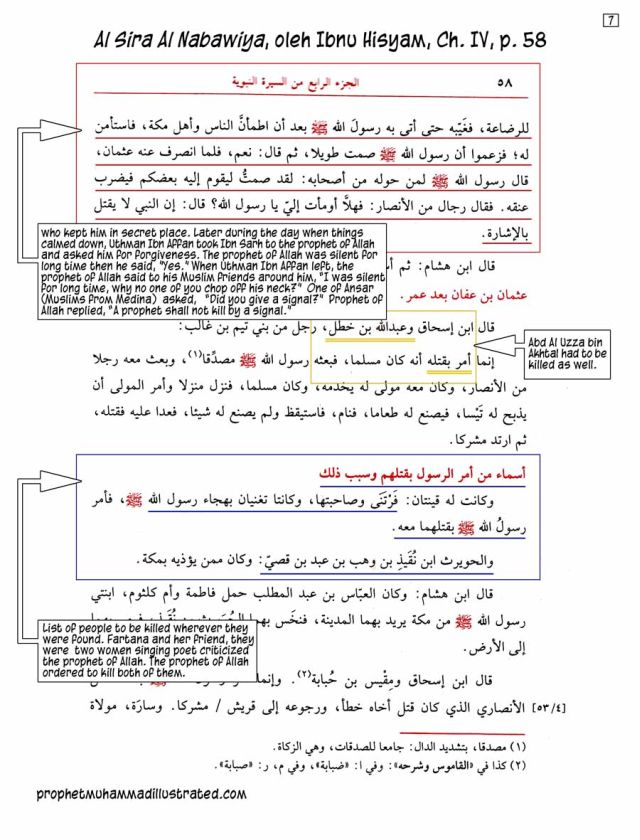 7
Al Sira Al Nabawiya, oleh Ibnu Hisyam, Ch. IV, p. 58
٥٨ الجزء الرابع من السيرة النبوية
للرضاعة، فغَيّبه حتى أتى به رسولَ الله ﷺ بعد أن اطمأنَّ الناس وأهل مكة، فاستأمن
له؛ فزعموا أن رسول الله ﷺ صمت طويلا، ثم قال: نعم، فلما انصرف عنه عثمان،
قال رسول الله ﷺ لمن حوله من أصحابه: لقد صمتُّ ليقوم إليه بعضكم فيضرب
عنقه. فقال رجال من الأنصار: فهلاَّ أومأت إليّ يا رسول الله؟ قال: إن النبي لا يقتل
بالإشارة.
who kept him in secret place. Later during the day when things
calmed down, Uthman Ibn Affan took Ibn Sarh to the prophet of Allah
and asked him for forgiveness. The prophet of Allah was silent for
long time then he said, "Yes." When Uthman Ibn Affan left, the
prophet of Allah said to his Muslim friends around him, "I was silent
for long time, why no one of you chop off his neck?" One of Ansar
(Muslims from Medina) asked, "Did you give a signal?" Prophet of
Allah replied, "A prophet shall not kill by a signal."
قال ابن هشام: ثم
عثمان بن عفان بعد عمر.
قال ابن إسحاق وعبدالله بن خطل، رجل من بني تيم بن غالب:
إنما أمر بقتله أنه كان مسلما، فبعثه رسول الله ﷺ مصدِّقا(١)، وبعث معه رجلا
من الأنصار، وكان معه مولى له يخدمه، وكان مسلما، فنزل منزلا وأمر المولى أن
يذبح له تَيْسا، فيصنع له طعاما، فنام، فاستيقظ ولم يصنع له شيئا، فعدا عليه فقتله،
ثم ارتد مشركا.
Abd Al Uzza bin
Akhtal had to be
killed as well.
أسماء من أمر الرسول بقتلهم وسبب ذلك
وكانت له قينتان: فَرْتَنَى وصاحبتها، وكانتا تغنيان بهجاء رسول الله ﷺ، فأمر
رسولُ الله ﷺ بقتلهما معه.
والحويرث ابن نُقَيذِ بن وهب بن عبد بن قصيّ: وكان ممن يؤذيه بمكة.
قال ابن هشام: وكان العبّاس بن عبد المطلب حمل فاطمة وأم كلثوم، ابنتي
رسول الله ﷺ من مكة يريد بهما المدينة، فنخَس بهما
إلى الأرض.
List of people to be killed wherever they
were found. Fartana and her friend, they
were two women singing poet criticized
the prophet of Allah. The prophet of Allah
ordered to kill both of them.
قال ابن إسحاق ومِقْيس بن حُبابة(٢). وإنما
الأنصاري الذي كان قتل أخاه خطأ، ورجوعه إلى قريش / مشركا. وسارَة، مولاة
[٥٣/٤]
(١) مصدقا، بتشديد الدال: جامعا للصدقات، وهي الزكاة.
(٢) كذا في «القاموس وشرحه»: وفي ا: «ضبابة»، وفي م، ر: «صبابة».
prophetmuhammadillustrated.com